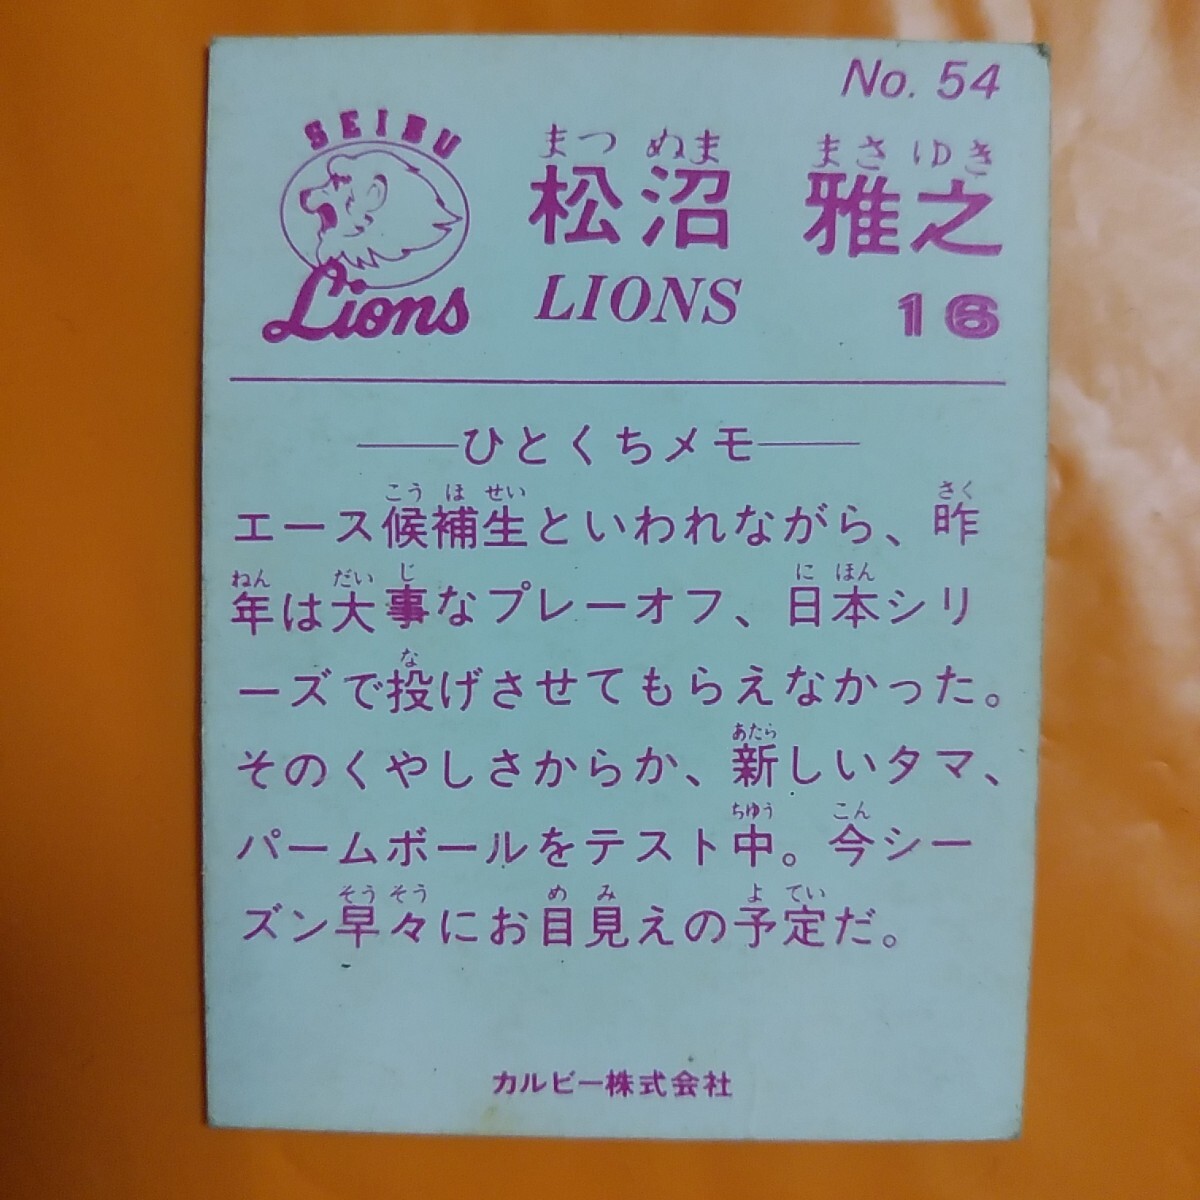 No. 54
SEIBU
Lions
まつ ぬま まさ ゆき
松沼 雅之
LIONS 16
――ひとくちメモ――
こう ほ せい さく
エース候補生といわれながら、昨
ねん だい じ に ほん
年は大事なプレーオフ、日本シリ
な
ーズで投げさせてもらえなかった。
あたら
そのくやしさからか、新しいタマ、
ちゆう こん
パームボールをテスト中。今シー
そう そう め み よ てい
ズン早々にお目見えの予定だ。
カルビー株式会社